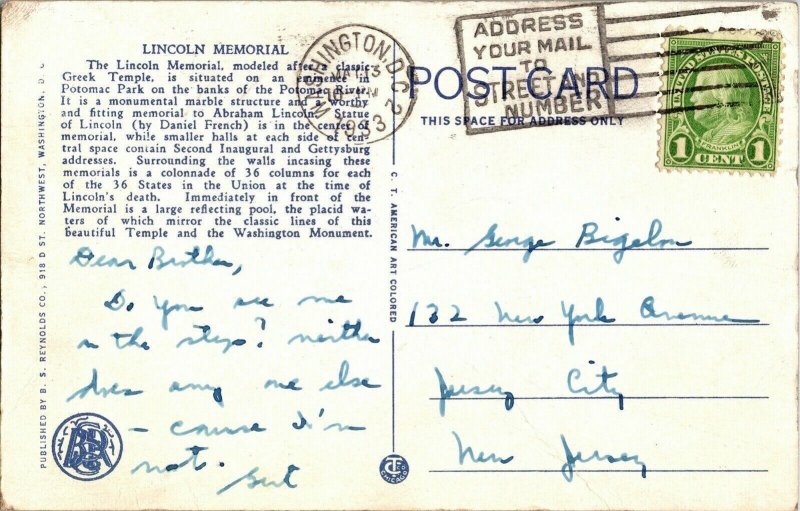 LINCOLN MEMORIAL
The Lincoln Memorial, modeled after a classic
Greek Temple, is situated on an eminence in
Potomac Park on the banks of the Potomac River.
It is a monumental marble structure and a worthy
and fitting memorial to Abraham Lincoln. Statue
of Lincoln (by Daniel French) is in the center of
memorial, while smaller halls at each side of cen-
tral space contain Second Inaugural and Gettysburg
addresses. Surrounding the walls incasing these
memorials is a colonnade of 36 columns for each
of the 36 States in the Union at the time of
Lincoln's death. Immediately in front of the
Memorial is a large reflecting pool, the placid wa-
ters of which mirror the classic lines of this
beautiful Temple and the Washington Monument.
Dear Brother,
Do you see me
on the steps? neither
does any one else
- cause I'm
not.
Gert
PUBLISHED BY B. S. REYNOLDS CO., 918 D ST. NORTHWEST, WASHINGTON, D. C.
BSR
C. T. AMERICAN ART COLORED
CHICAGO
WASHINGTON, D.C. 2
MAY 13
1933
ADDRESS
YOUR MAIL
TO
STREET AND
NUMBER
POST CARD
THIS SPACE FOR ADDRESS ONLY
UNITED STATES POSTAGE
FRANKLIN
1 CENT 1
Mr. George Bigelow
132 New York Avenue
Jersey City
New Jersey